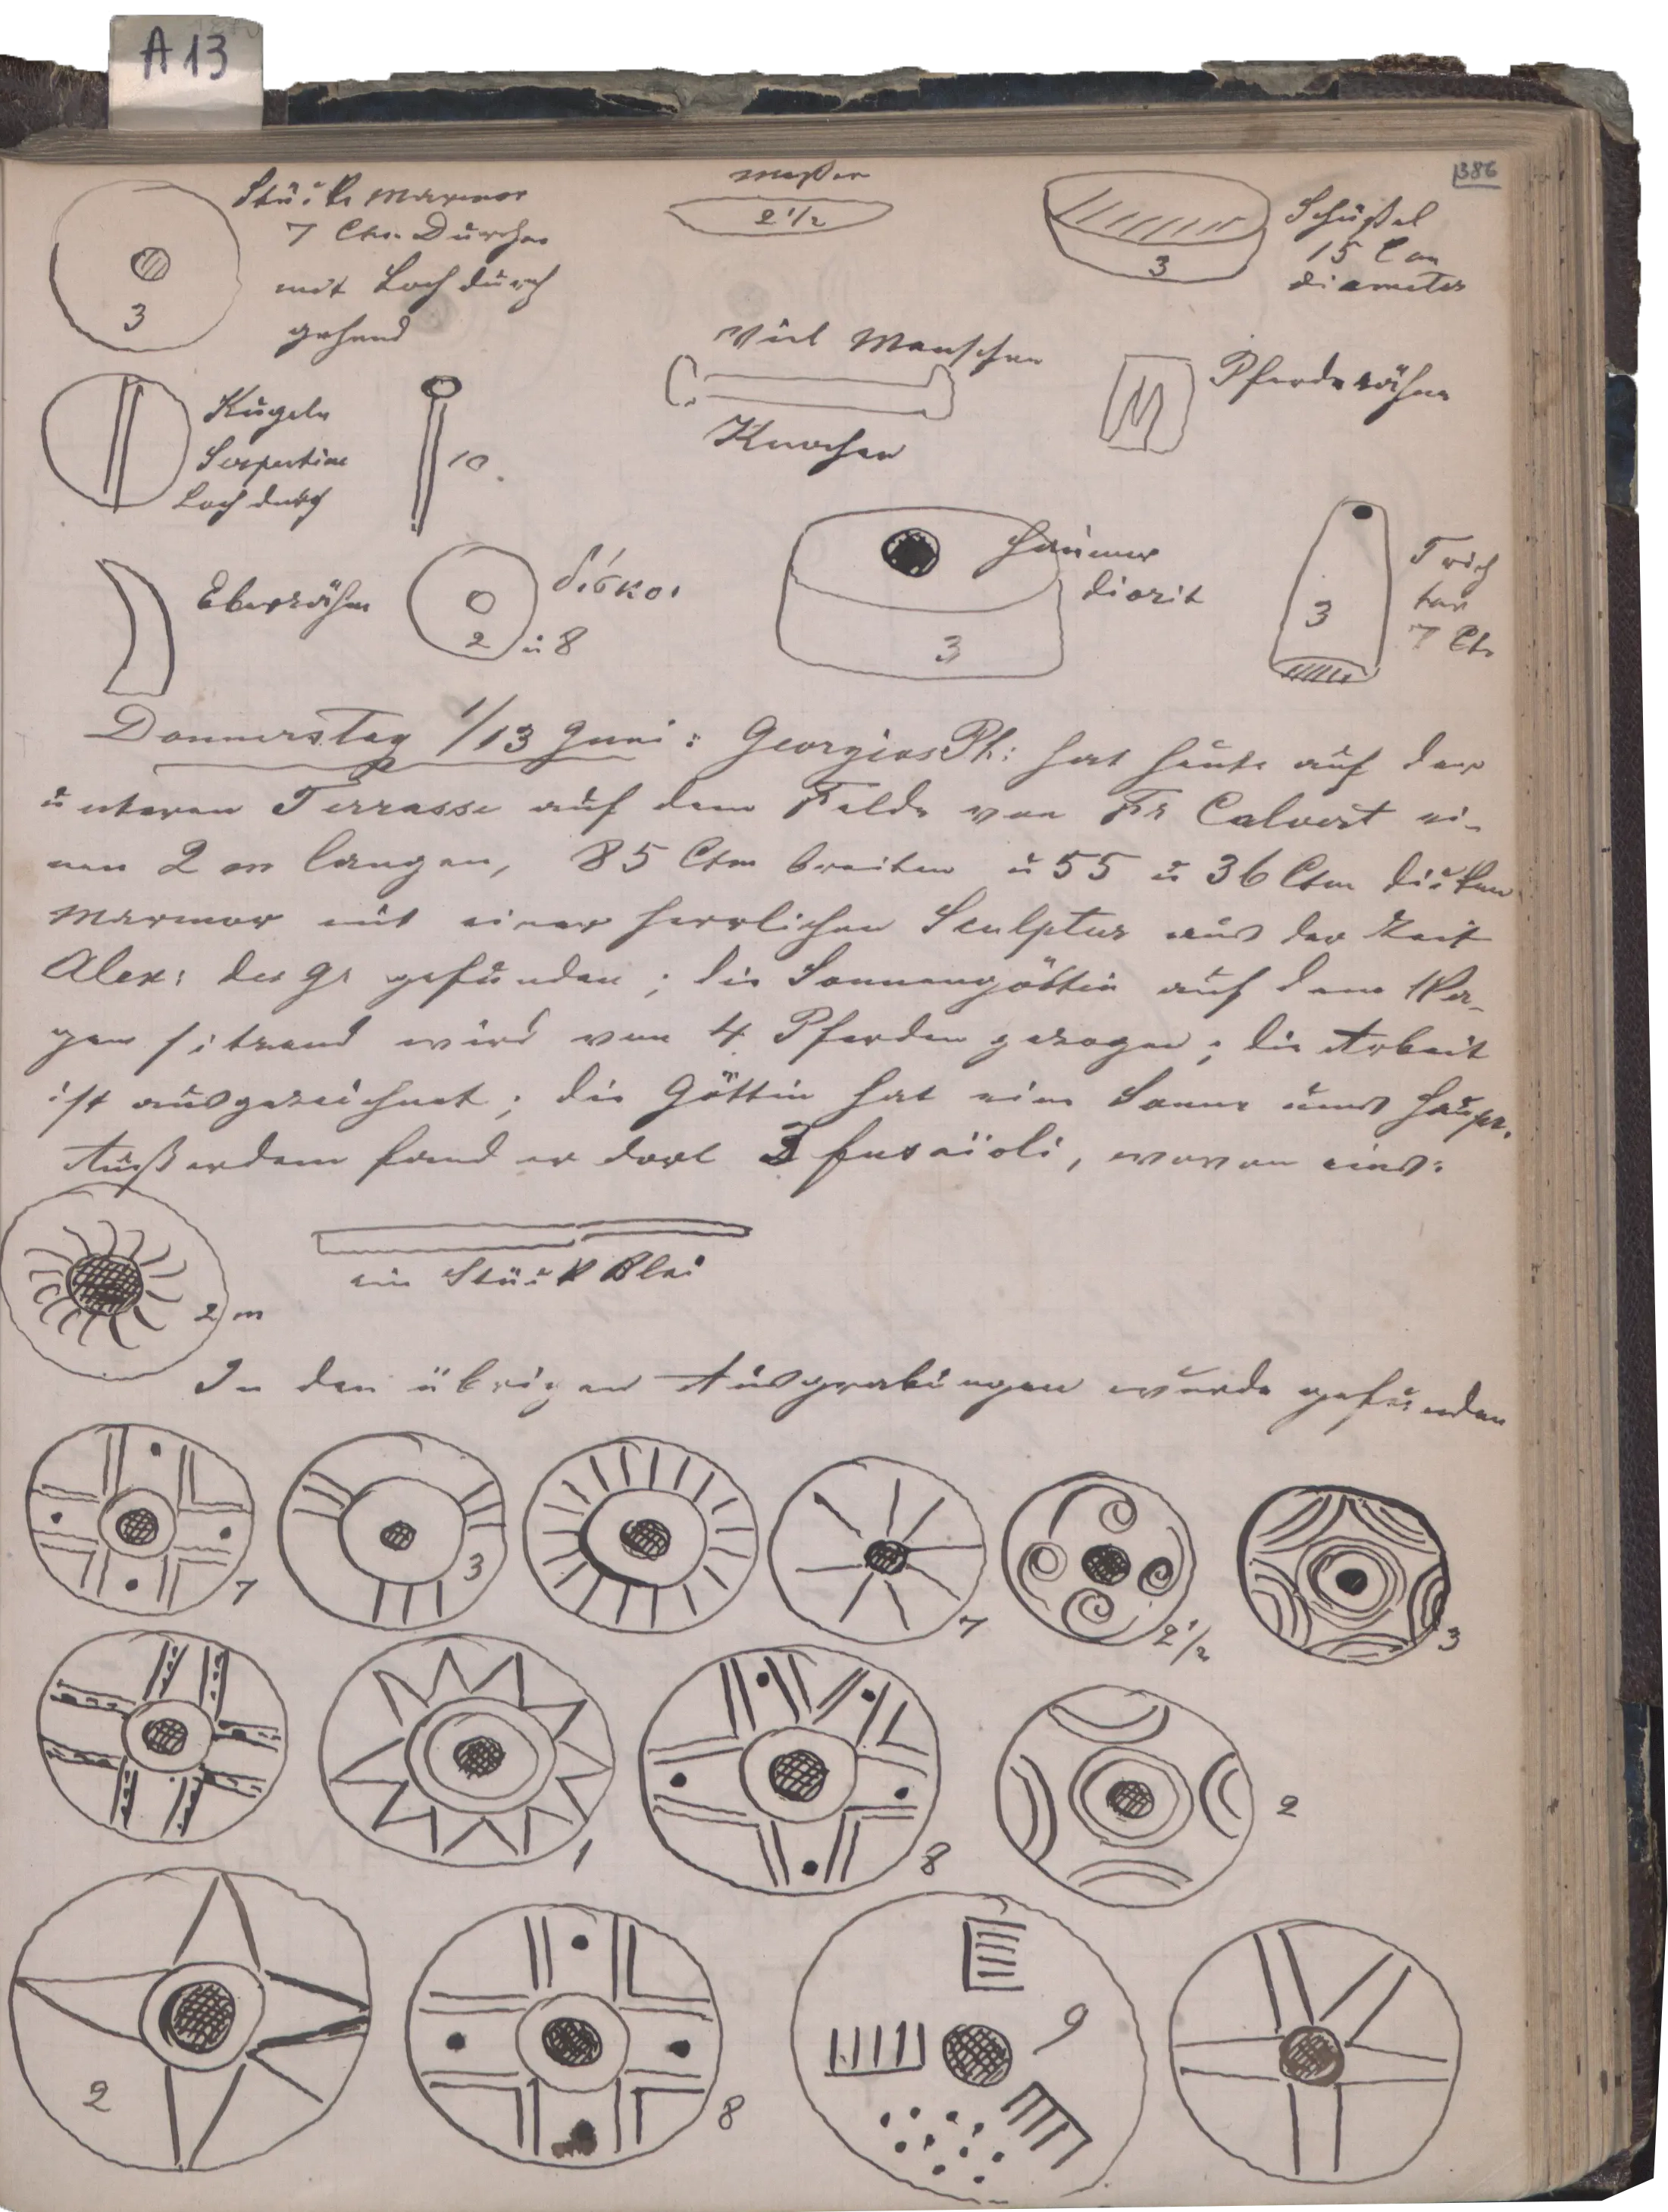 A 13
386
Stück Marmor
7 Ctm. Durchm
mit Loch durch
gehend
3
Meßer
2 1/2
Schüßel
15 Ctm
diameter
3
Kugeln
Serpentine
Loch durch
10
Viel Menschen
Knochen
Pferdezähne
Eberzähne
δίσκοι
2 u 8
Hammer
diorit
3
Trich
ter
7 Ct
3
Donnerstag 1/13 Juni: Georgios Ph: hat heute auf der
unteren Terrasse auf dem Felde von Fr Calvert ei-
nen 2 m langen, 85 Ctm breiten u 55 u 36 Ctm dicken
Marmor mit einer herrlichen Sculptur aus der Zeit
Alex: des Gr gefunden; die Sonnengöttin auf dem Wa-
gen sitzend wird von 4 Pferden gezogen; die Arbeit
ist ausgezeichnet; die Göttin hat eine Sonne ums Haupt.
Außerdem fand er dort 3 fusaïoli, wovon eins:
2 m
ein Stück Blei
In den übrigen Ausgrabungen wurde gefunden
7
3
7
2 1/2
3
1
8
2
2
8
9